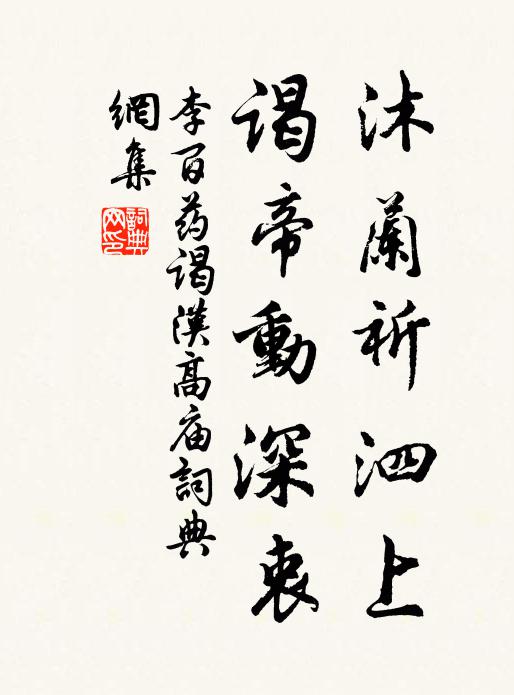 沐蘭祈泗上
谒帝動深衷
李百药谒漢高庙詞典
網集
詞典
网印